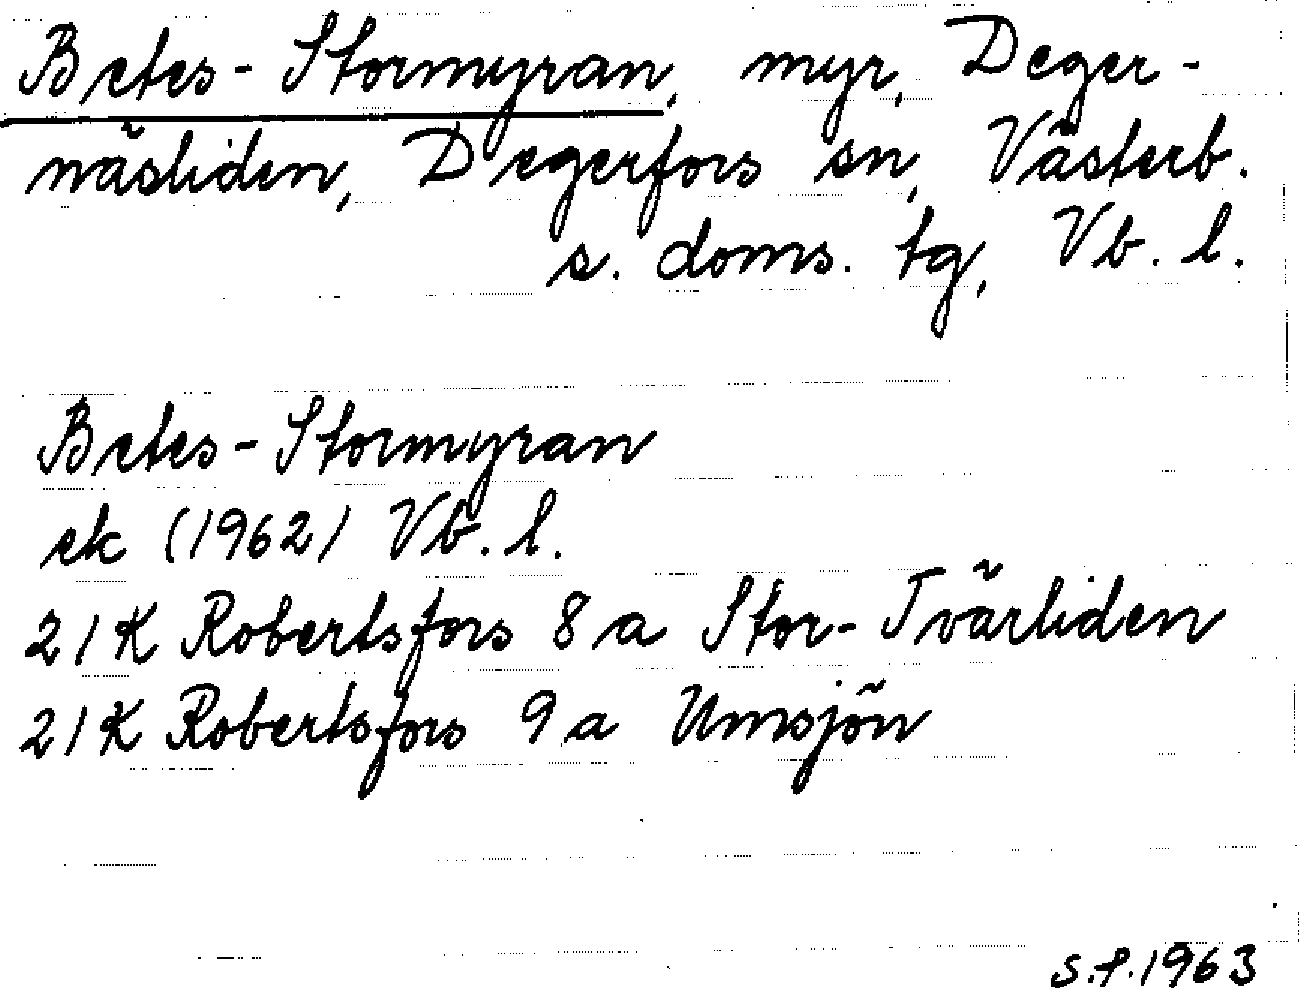 Betes-Stormyran, myr, Deger-
näsliden, Degerfors sn, Västerb.
s. doms. tg, Vb. l.
Betes-Stormyran
ek (1962) Vb. l.
21K Robertsfors 8 a Stor-Tvärliden
21K Robertsfors 9 a Umsjön
S.F. 1963